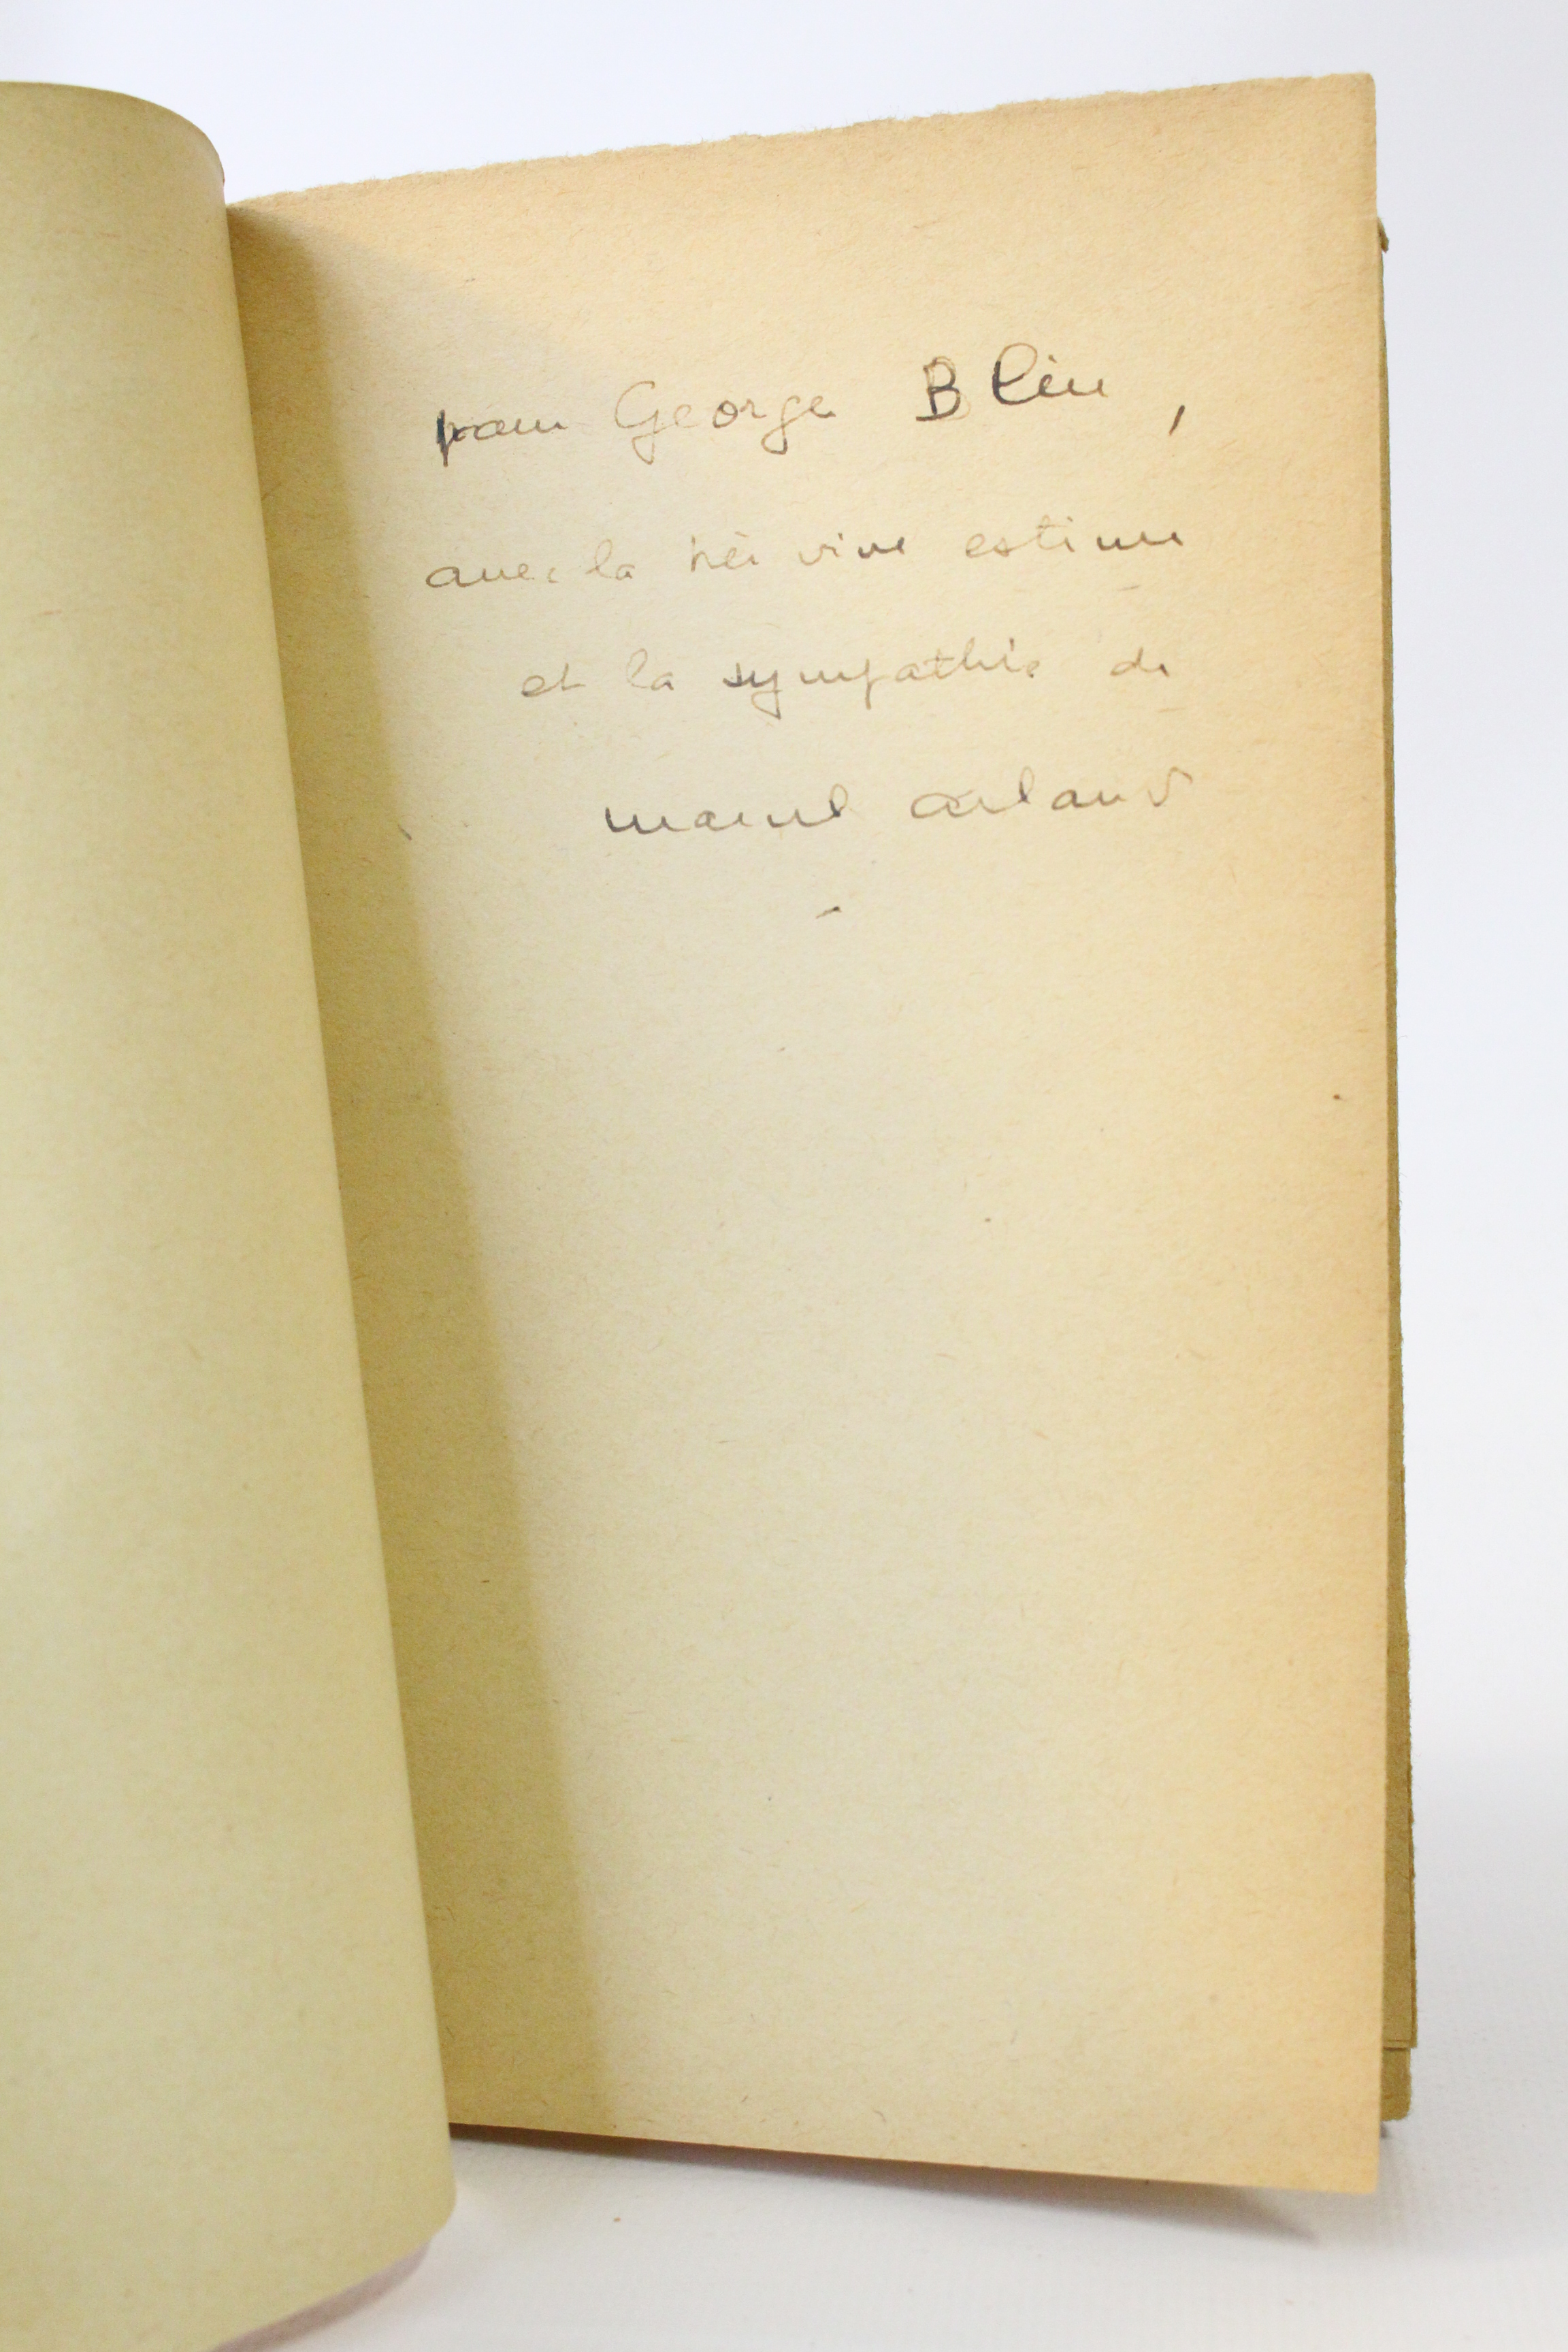 pour George Blin,
avec la très vive estime
et la sympathie de
marcel arland